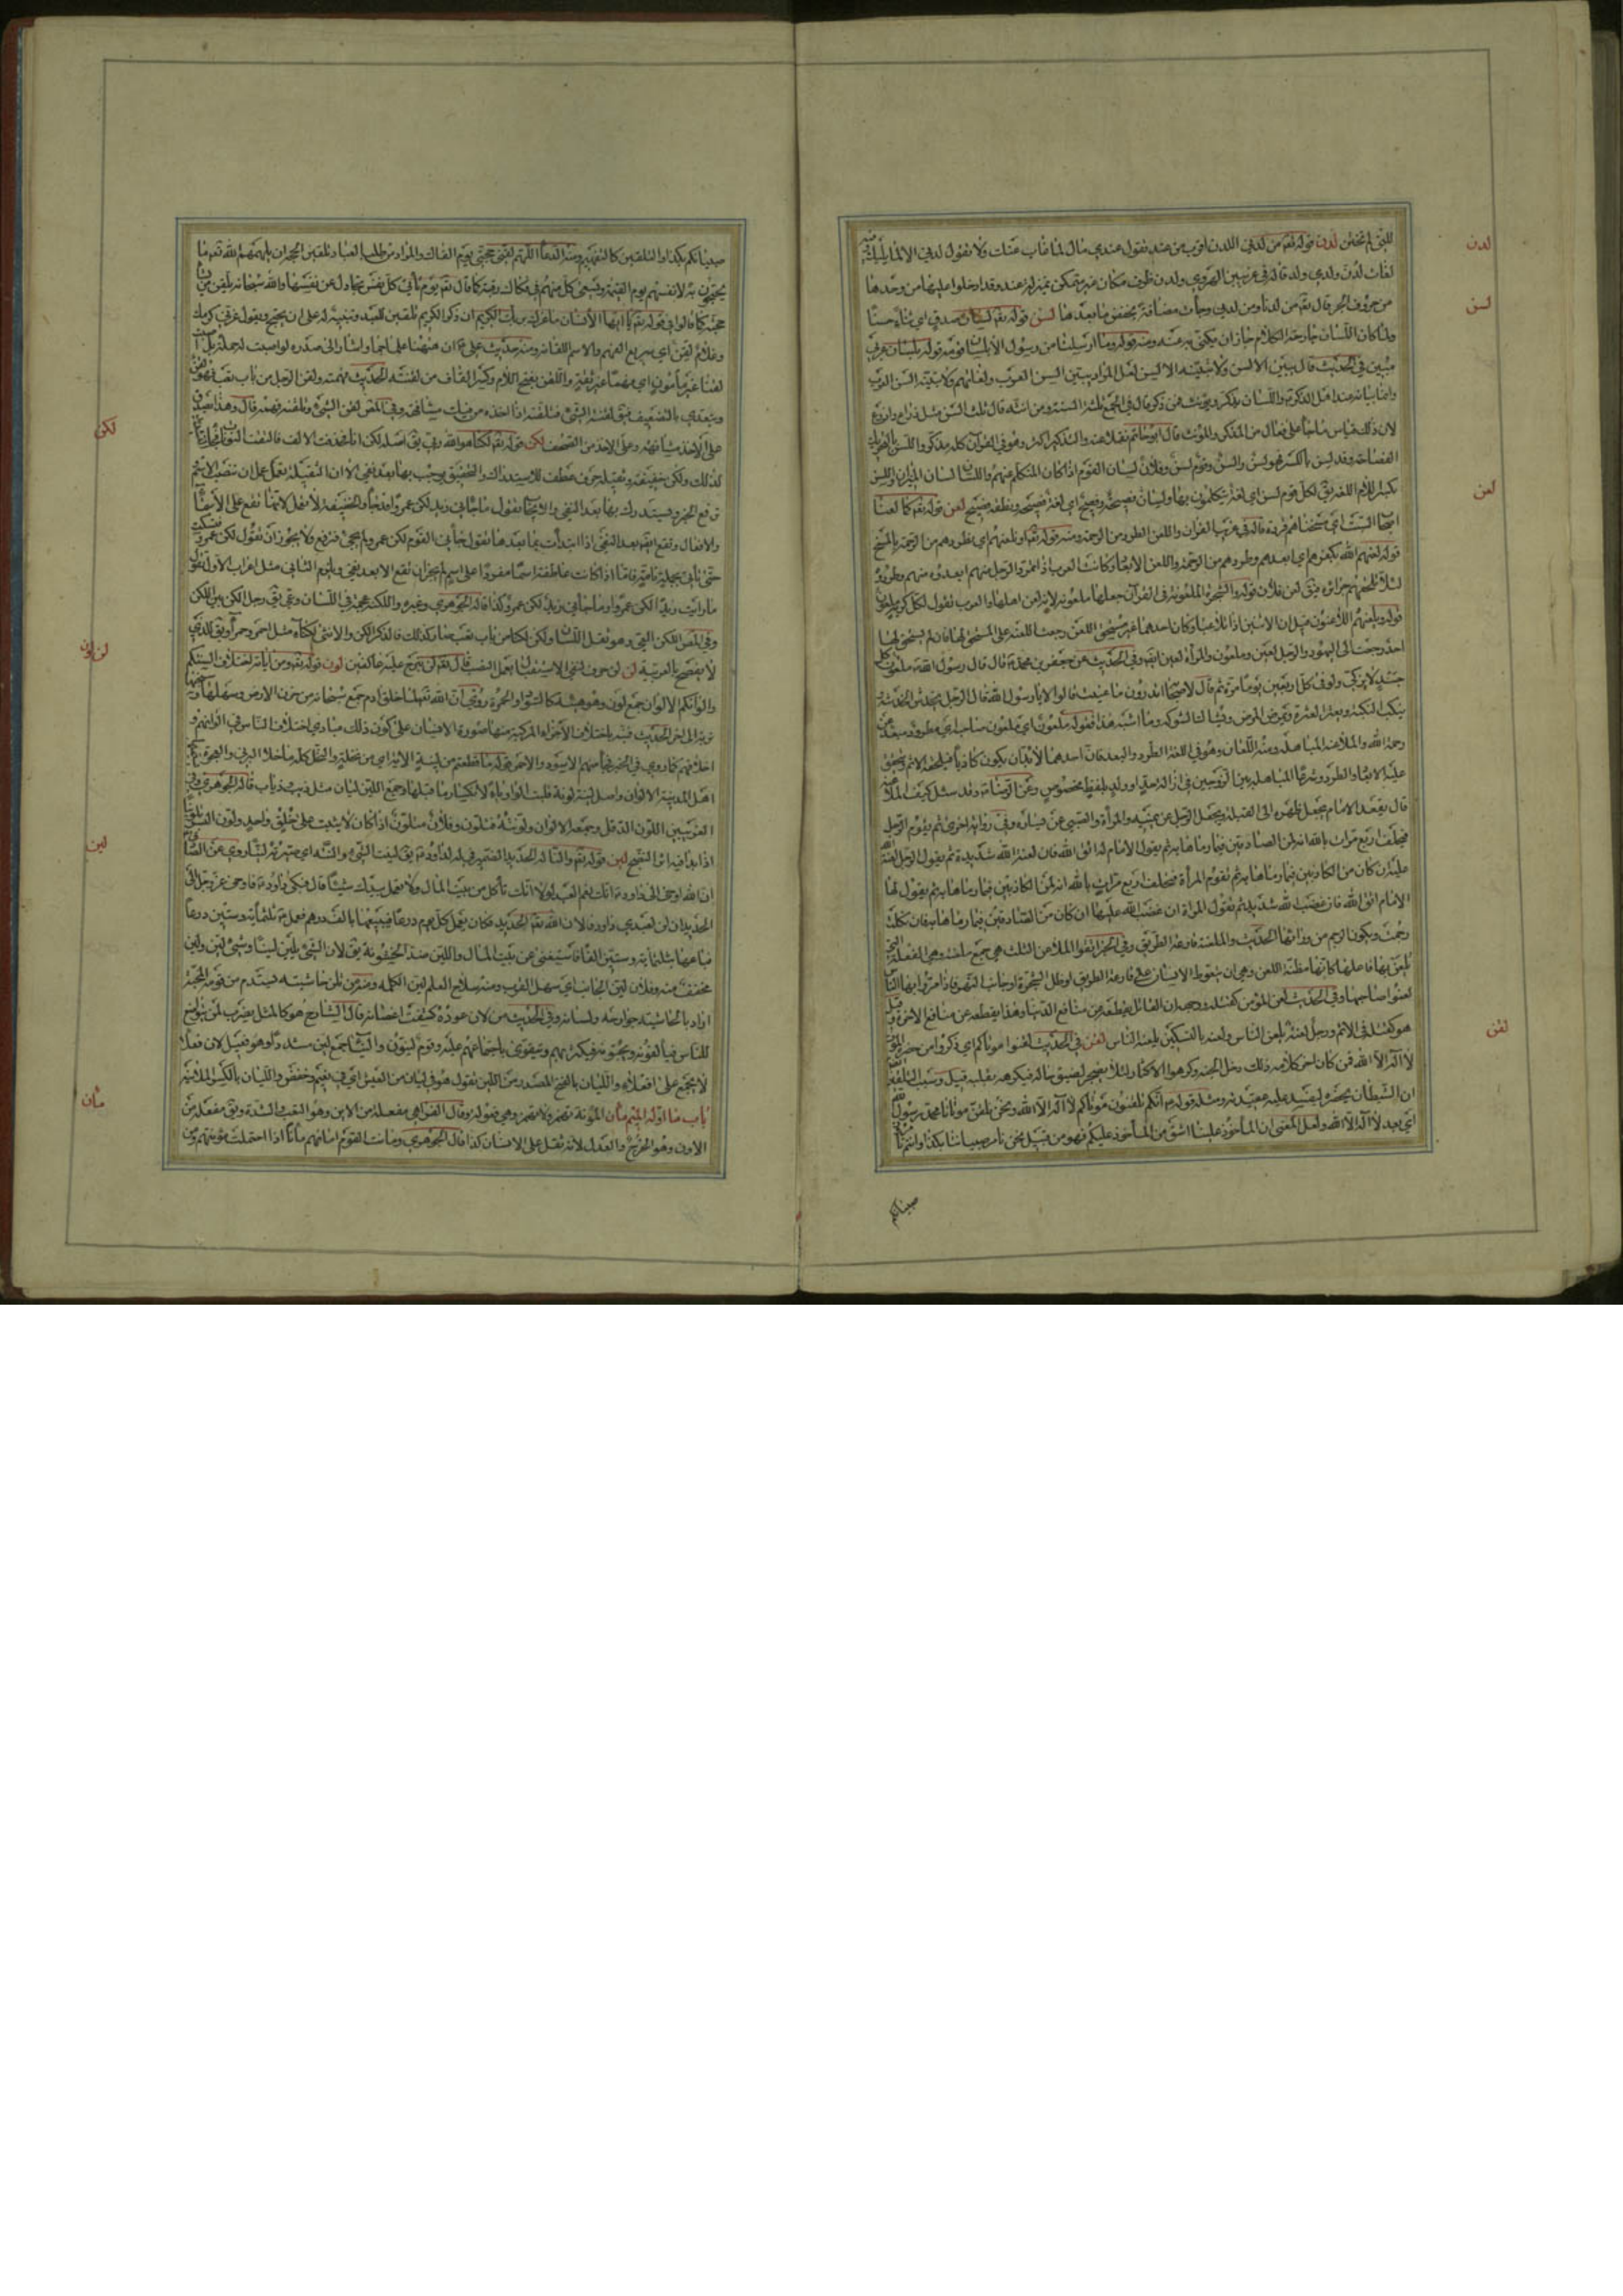 لدن
للبن لم تخثن لدن قوله تعالى من لدني اللدن اقرب من عند تقول عندي مال لما غاب عنك ولا تقول لدي الا لما يليك
لغات لدن ولدي ولد قاله في غريبين الهروي ولدن ظرف مكان غير متمكن بمنزلة عند وقد ادخلوا عليها من وحدها
لسن
من حروف الجر قال تعالى من لدنا ومن لدني وجاءت مضافة تخفض ما بعدها لسن قوله تعالى لسان صدق اي ثناء حسنا
ولما كان اللسان جارحة الكلام جاز ان يكنى به عنه ومنه قوله وما ارسلنا من رسول الا بلسان قومه قوله بلسان عربي
مبين في الحديث قال يبين الالسن ولا تبينه الالسن لعل المراد يبين السن العرب ولغاتهم ولا تبينه السن العرب
لان ذلك قياس ما جاء على فعال من المذكر والمؤنث قال ابو حاتم والتذكير اكثر وهو في القرآن كله مذكر واللسن
الفصاحة وقد لسن بالكسر فهو لسن والسن وقوم لسن وفلان لسان القوم اذا كان المتكلم عنهم واللسان لسان الميزان واللسن
لعن
بكسر اللام اللغة يق لكل قوم لسن اي لغة يتكلمون بها ولسان فصيحة وفصيح اي لغة فصيحة ونطقه فصيح لعن قوله تعالى كما لعنا
اصحاب السبت اي مسخناهم قردة قاله في غريب القرآن واللعن الطرد من الرحمة ومنه قوله تعالى او نلعنهم اي نطردهم من الرحمة بالمسخ
قوله لعنهم الله بكفرهم اي ابعدهم وطردهم من الرحمة واللعن الابعاد وكانت العرب اذا تمرد الرجل منهم ابعدوه منهم وطردوه
لئلا تلحقهم جرائره ويق لعن فلان قوله والشجرة الملعونة في القرآن جعلها ملعونة لانه لعن اهلها والعرب تقول لكل كريه ملعون
قوله ويلعنهم اللاعنون قيل ان الاثنين اذا تلاعنا وكان احدهما غير مستحق اللعن رجعت اللعنة على المستحق لها فان لم يستحق لها
احد رجعت الى اليهود والرجل لعين وملعون والمراة لعين ايضا وفي الحديث عن جعفر بن محمد قال قال رسول الله ملعون كل
جسد لا يزكى ولو في كل اربعين يوما مرة ثم قال لاصحابه اتدرون ما عنيت قالوا لا يا رسول الله قال الرجل يخدش الخدشة
وينكب النكبة ويعثر العثرة ويمرض المرض ويشاك الشوكة وما اشبه هذا فقوله ملعون اي ملعون صاحبه اي مطرود مبعد عن
رحمة الله والملاعنة المباهلة ومنه اللعان وهو في اللغة الطرد والبعد فان احدهما لا بد ان يكون كاذبا فيلحقه الاثم ويتحقق
عليه الابعاد والطرد وشرعا المباهلة بين الزوجين في ازالة حد او ولد بلفظ مخصوص وعن الرضا وقد سئل كيف الملاعنة
قال يقعد الامام يجعل ظهره الى القبلة ويجعل الرجل عن يمينه والمراة والصبي عن يساره وفي رواية اخرى ثم يقوم الرجل
فيحلف اربع مرات بالله انه لمن الصادقين فيما رماها به ثم يقول الامام له اتق الله فان لعنة الله شديدة ثم يقول الرجل لعنة الله
عليه ان كان من الكاذبين فيما رماها به ثم تقوم المرأة فتحلف اربع مرات بالله انه لمن الكاذبين فيما رماها به ثم يقول لها
الامام اتق الله فان غضب الله شديد ثم تقول المراة ان غضب الله عليها ان كان من الصادقين فيما رماها به فان نكلت
رجمت ويكون الرجم من ورائها الحديث والملعنة قارعة الطريق وفي الخبر اتقوا الملاعن الثلث هي جمع ملعنة وهي الفعلة التي
يلعن بها فاعلها كانها مظنة اللعن وهي ان يتغوط الانسان على قارعة الطريق او ظل الشجرة او جانب النهر فاذا مر بها الناس
لعنوا صاحبها وفي الحديث لعن المؤمن كقتله ووجه ان القاتل يقطعه عن منافع الدنيا وهذا يقطعه عن منافع الاخرة وقيل
لقن
هو كقتله في الاثم ورجل لعنة يلعن الناس ولعنة بالتسكين يلعنه الناس لقن في الحديث لقنوا موتاكم اي ذكروا من حضره الموت
لا اله الا الله فمن كان اخر كلامه ذلك دخل الجنة وكرهوا الاكثار لئلا يضجر لضيق حاله فيكرهه بقلبه قيل وسبب التلقين
ان الشيطان يحضره ليفسد عليه عقيدته ومثله قوله انكم تلقنون موتاكم لا اله الا الله ونحن نلقن موتانا محمد رسول الله
اي بعد لا اله الا الله ولعل المعنى ان الماخوذ علينا اشق من الماخوذ عليكم فهو من قبيل نحن نامر صبياننا بكذا وانتم تامرون
صبيانكم
صبيانكم بكذا والتلقين كالتفهيم ومنه الدعاء اللهم لقني حجتي يوم القاك والمراد من طلب العباد تلقين الحجة ان يلهمهم الله تعالى ما
يحتجون به لانفسهم يوم القيمة ويسعى كل منهم في فكاك رقبته كما قال تعالى يوم تأتي كل نفس تجادل عن نفسها والله سبحانه يلقن من يشاء
حجته كما قالوا في قوله تعالى يا ايها الانسان ما غرك بربك الكريم ان ذكر الكريم تلقين للعبد وتنبيه له على ان يحتج ويقول غرني كرمك
وغلام لقن اي سريع الفهم والاسم اللقانة ومنه حديث علي ان ههنا علما جما واشار الى صدره لو اصبت له حملة بلى اصبت
لقنا غير مأمون اي فهما غير ثقة واللقن بفتح اللام وكسر القاف من لقنت الحديث فهمته ولقن الرجل من باب تعب فهو لقن
ويتعدى بالتضعيف فيق لقنته الشيء فتلقنه اذا اخذه من فيك مشافهة وفي المصباح لقن الشيء وتلقنه فهمه قال وهذا يصدق
لكن
على الاخذ مشافهة وعلى الاخذ من المصحف لكن قوله تعالى لكنا هو الله ربي يق اصله لكن انا فحذفت الالف فالتقت النونان
لذلك ولكن خفيفة وثقيلة حرف عطف للاستدراك والتحقيق يوجب بها بعد نفي الا ان الثقيلة تعمل عمل ان تنصب الاسم
وترفع الخبر ويستدرك بها بعد النفي والايجاب تقول ما جاءني زيد لكن عمرو قد جاء والخفيفة لا تعمل لانها تقع على الاسماء
والافعال وتقع ايضا بعد النفي اذا ابتدأت بما بعدها تقول جاءني القوم لكن عمرو لم يجئ فترفع ولا يجوز ان تقول لكن عمرو فتسكت
حتى تأتي بجملة تامة فاما اذا كانت عاطفة اسما مفردا على اسم لم يجز ان تقع الا بعد نفي ويلزم الثاني مثل اعراب الاول تقول
ما رايت زيدا لكن عمروا وما جاءني زيد لكن عمرو كذا قاله الجوهري وغيره واللكنة عجمة في اللسان وعي يق رجل الكن بين اللكن
لن لون
وفي المصباح اللكن العي وهو ثقل اللسان ولكن لكنا من باب تعب صار كذلك فالذكر الكن والانثى لكناء مثل احمر وحمراء ويق الذي
لا يفصح بالعربية لن لن حرف لنفي الاستقبال يعمل النصب قال تعالى لن نبرح عليه عاكفين لون قوله تعالى ومن اياته اختلاف السنتكم
والوانكم الالوان جمع لون وهو هيئة كالسواد والحمرة روي ان الله تعالى لما خلق ادم جمع سبحانه من حزن الارض وسهلها وسبخها
تربة الى اخر الحديث فنبه باختلاف الاجزاء المركبة منها صورة الانسان على كون ذلك مبادي اختلاف الناس في الوانهم و
اخلاقهم كما روي في الخبر فجاء منهم الاسود والاحمر قوله ما قطعتم من لينة الاية اي من نخلة والنخل كله ما خلا البرني والعجوة يسميه
اهل المدينة الالوان واصل لينة لونة قلبت الواو ياء لانكسار ما قبلها وجمع اللين ليان مثل ذئب وذياب قاله الجوهري وفي
الغريبين اللون الدقل وجمعه الالوان ولونته فتلون وفلان متلون اذا كان لا يثبت على خلق واحد ولون البسر تلوينا
لين
اذا بدا فيه اثر النضج لين قوله تعالى والنا له الحديد الضمير فيه لداود يق لينت الشيء والنته اي صيرته لينا روي عن الصادق
ان الله اوحى الى داود انك نعم العبد لولا انك تأكل من بيت المال ولا تعمل بيدك شيئا قال فبكى داود فاوحى عز وجل الى
الحديد ان لن لعبدي داود فالان الله تعالى الحديد فكان يعمل كل يوم درعا فيبيعها بالف درهم فعمل ثلثمائة وستين درعا
فباعها بثلثمائة وستين الفا فاستغنى عن بيت المال واللين ضد الخشونة يق لان الشيء يلين لينا وشيء لين ولين
مخفف منه وفلان لين الجانب اي سهل القرب ومنه سلاح العلم لين الكلمة ومنه من تلن حاشيته يستدم من قومه المحبة
اراد بالحاشية جوارحه ولسانه وفي الحديث من لان عوده كثفت اغصانه قال الشارح هو كالمثل يضرب لمن يتواضع
للناس فيألفونه ويحبونه فيكثر بهم ويتقوى باجتماعهم عليه وقوم لينون والينا جمع لين مشددا وهو فيعل لان فعلا
لا يجمع على افعلاء والليان بالفتح المصدر من اللين تقول هو في ليان من العيش اي في نعيم وخفض والليان بالكسر الملاينة
مأن
باب ما اوله الميم مأن المؤنة تهمز ولا تهمز وهي فعولة وقال الفراء هي مفعلة من الاين وهو التعب والشدة ويق مفعلة من
الاون وهو الخرج والعدل لانه ثقل على الانسان كذا قال الجوهري ومأنت القوم امأنهم مأنا اذا احتملت مؤنتهم ومن